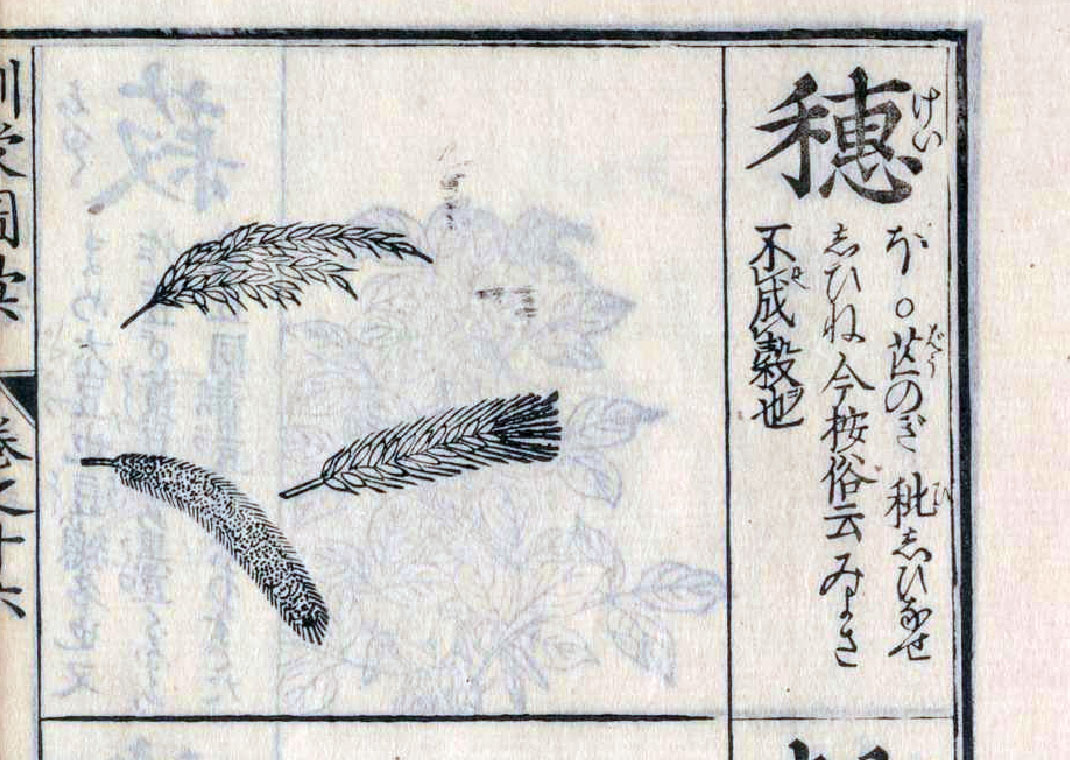 穗
けい
ほ。芒のぎ 秕しひなせ
ばう
ひ
しひね 今按俗云みよさ
不成穀也
訓蒙図彙
巻之十六